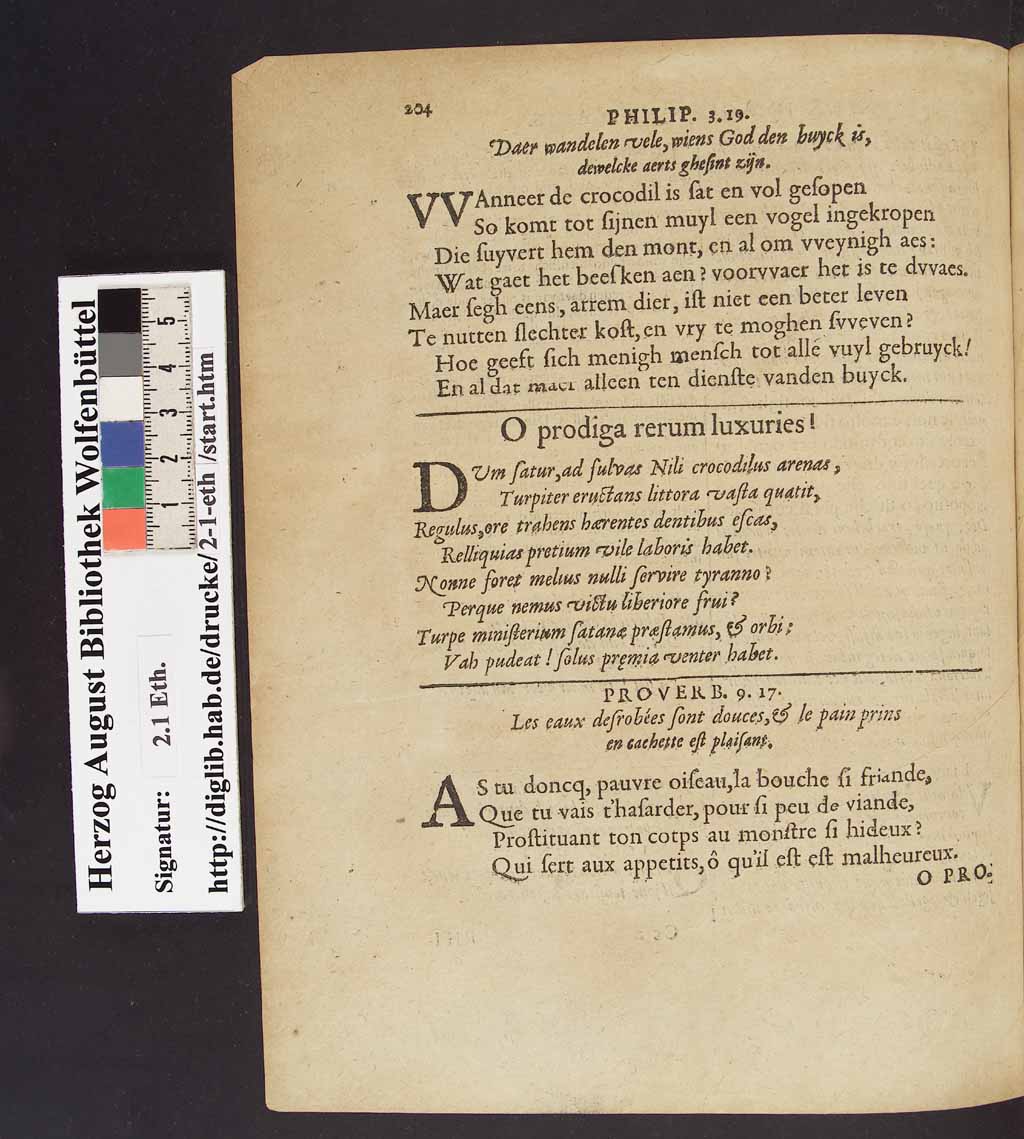 204
PHILIP. 3.19.
Daer wandelen vele, wiens God den buyck is,
dewelcke aerts ghesint zijn.
VVAnneer de crocodil is ſat en vol geſopen
So komt tot ſijnen muyl een vogel ingekropen
Die ſuyvert hem den mont, en al om vveynigh aes:
Wat gaet het beeſken aen? voorvvaer het is te dvvaes.
Maer ſegh eens, arrem dier, iſt niet een beter leven
Te nutten ſlechter koſt, en vry te moghen ſvveven?
Hoe geeft ſich menigh menſch tot allé vuyl gebruyck!
En al dat maer alleen ten dienſte vanden buyck.
O prodiga rerum luxuries!
DUm ſatur, ad fulvas Nili crocodilus arenas,
Turpiter eructans littora vaſta quatit,
Regulus, ore trahens hærentes dentibus eſcas,
Relliquias pretium vile laboris habet.
Nonne foret melius nulli ſervire tyranno?
Perque nemus victu liberiore frui?
Turpe miniſterium ſatanæ præſtamus, & orbi;
Vah pudeat! ſolus pręmia venter habet.
PROVERB. 9. 17.
Les eaux deſrobées ſont douces, & le pain prins
en cachette eſt plaiſant.
AS tu doncq, pauvre oiſeau, la bouche ſi friande,
Que tu vais t'haſarder, pour ſi peu de viande,
Proſtituant ton corps au monſtre ſi hideux?
Qui ſert aux appetits, ô qu'il eſt eſt malheureux.
O PRO-
Herzog August Bibliothek Wolfenbüttel
Signatur: 2.1 Eth.
http://diglib.hab.de/drucke/2-1-eth/start.htm
1 2 3 4 5